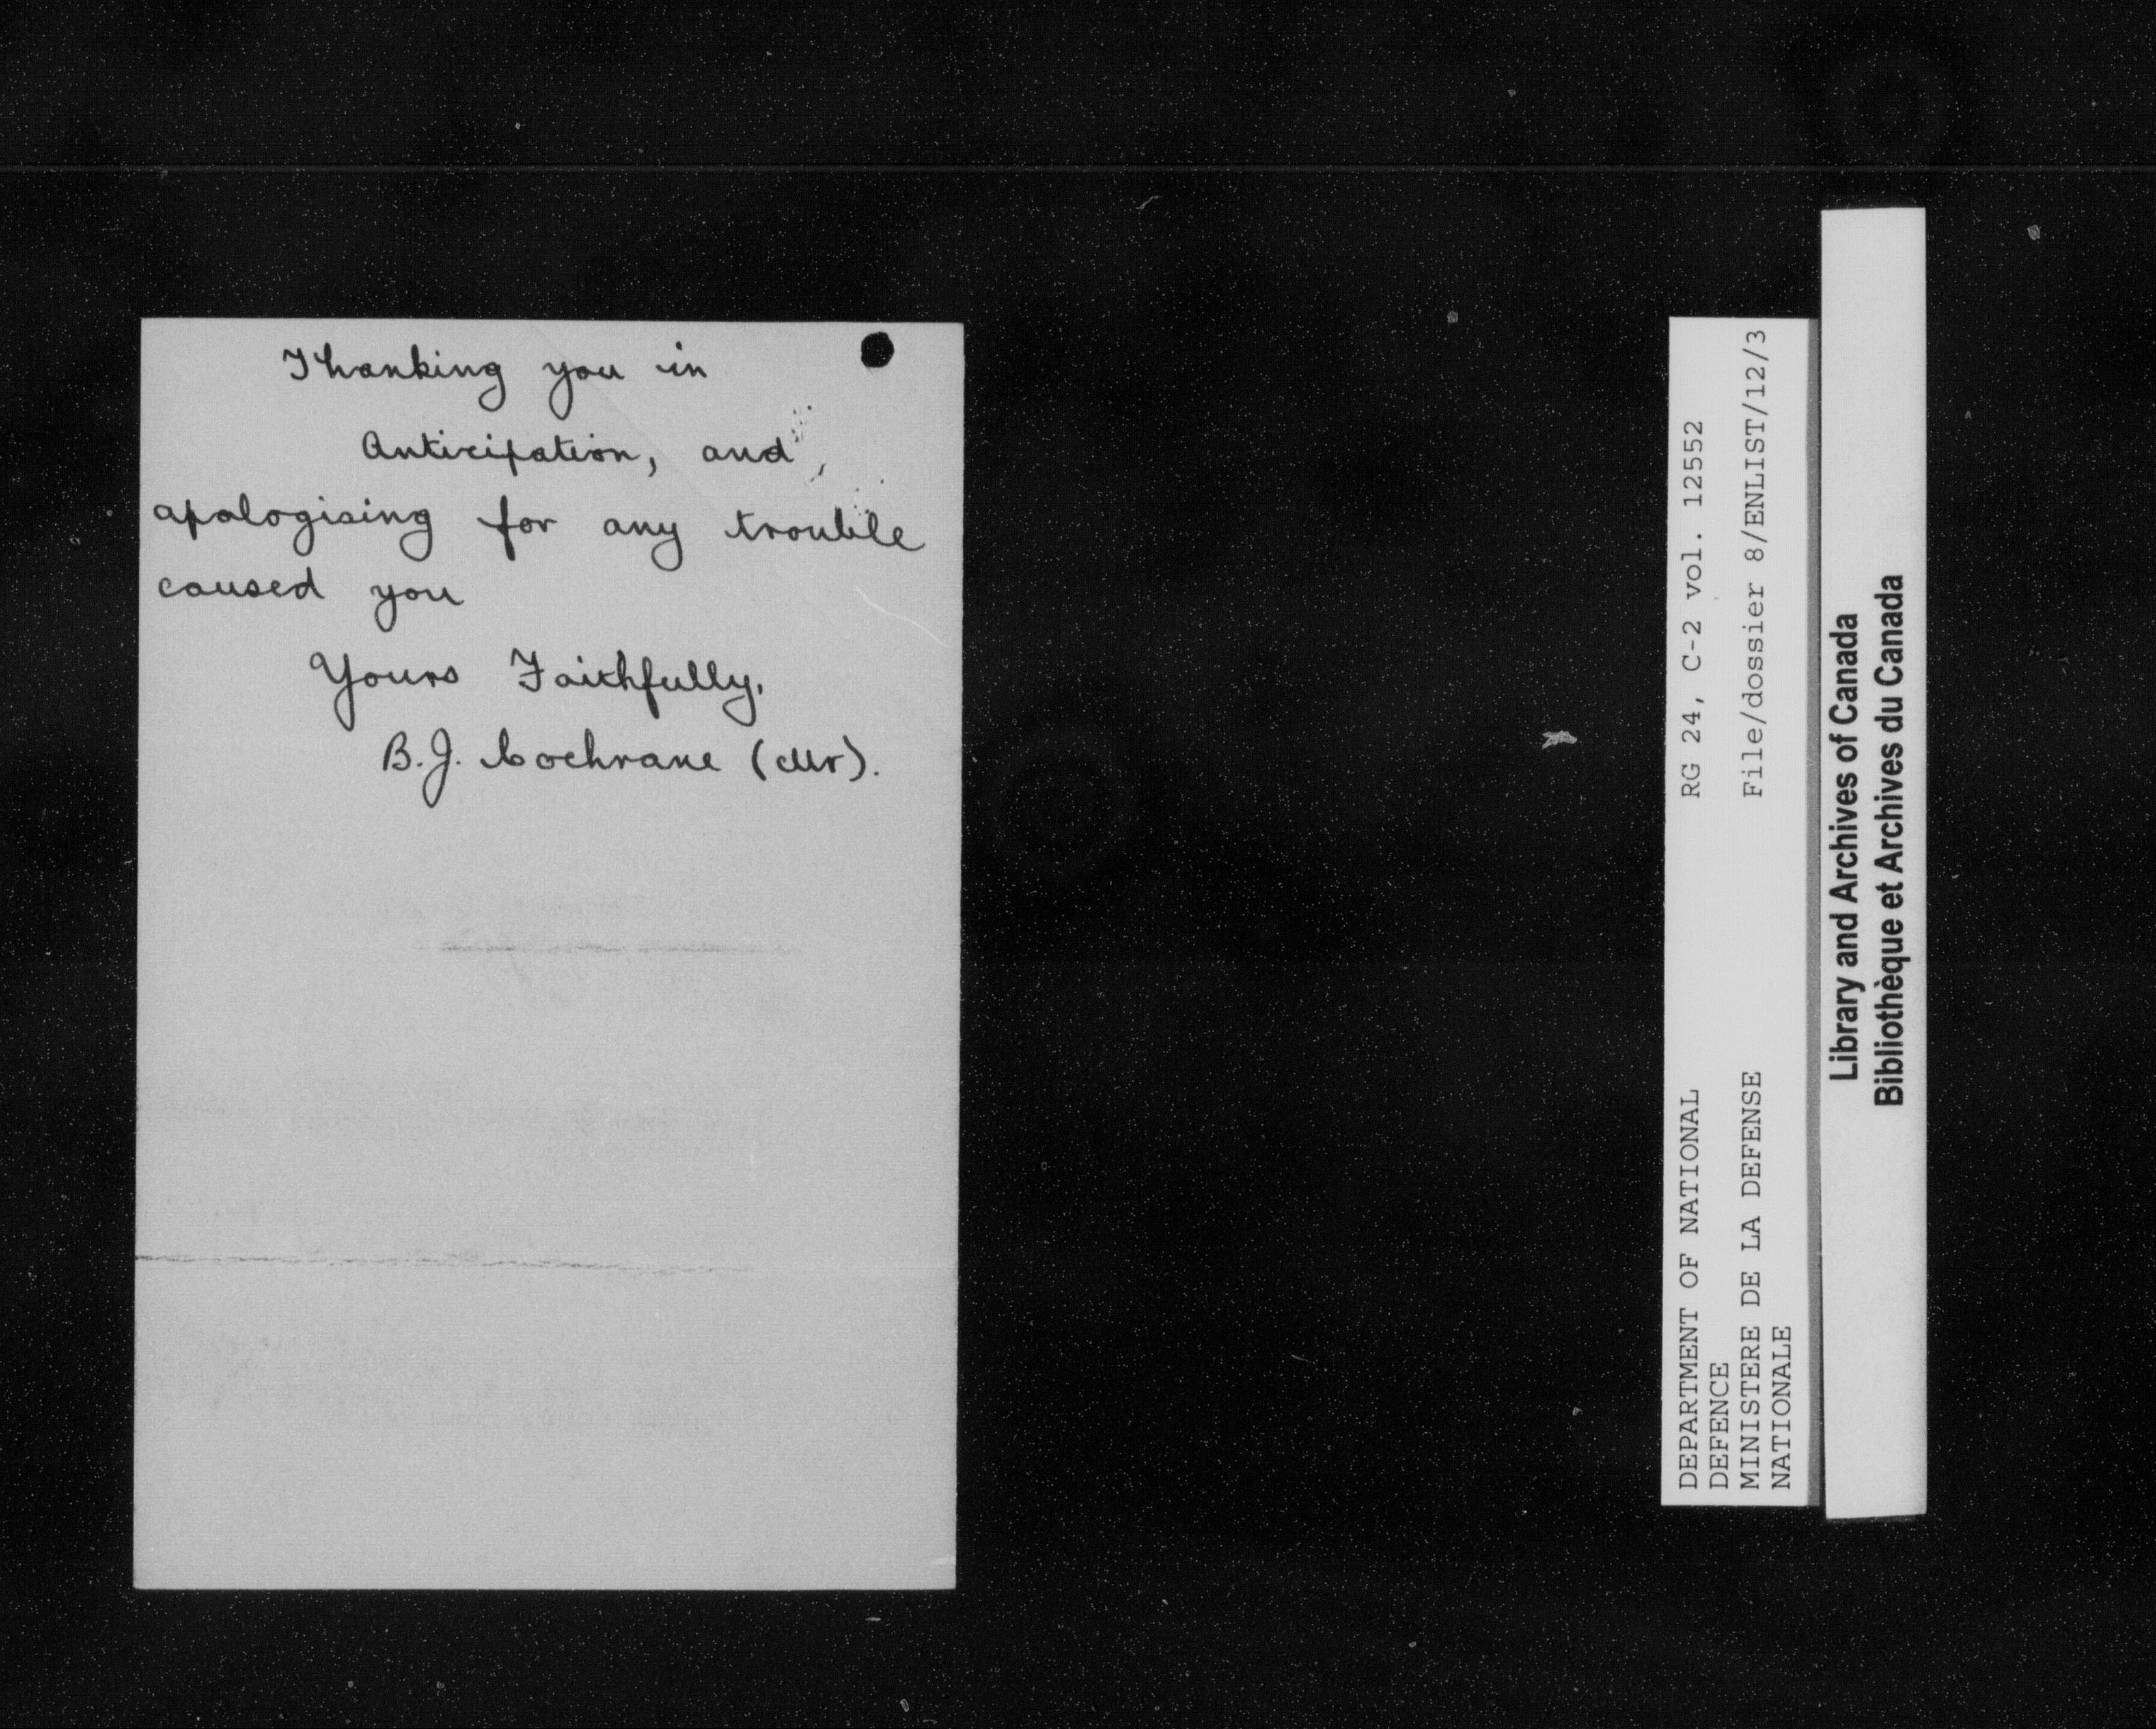 Thanking you in
Anticipation, and
apologising for any trouble
caused you
Yours Faithfully,
B.J. Cochrane (Mr).
DEPARTMENT OF NATIONAL
DEFENCE
MINISTERE DE LA DEFENSE
NATIONALE
RG 24, C-2 vol. 12552
File/dossier 8/ENLIST/12/3
Library and Archives of Canada
Bibliothèque et Archives du Canada